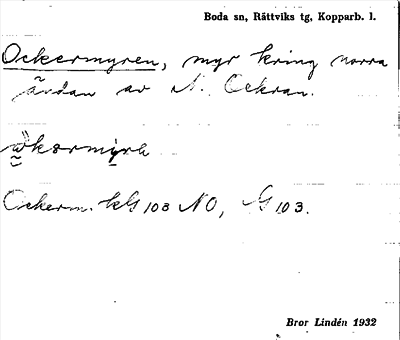 Boda sn, Rättviks tg, Kopparb. l.
Ockermyren, myr kring norra
ändan av N. Ockran.
Ockerm. kG 103 NO, G 103.
Bror Lindén 1932